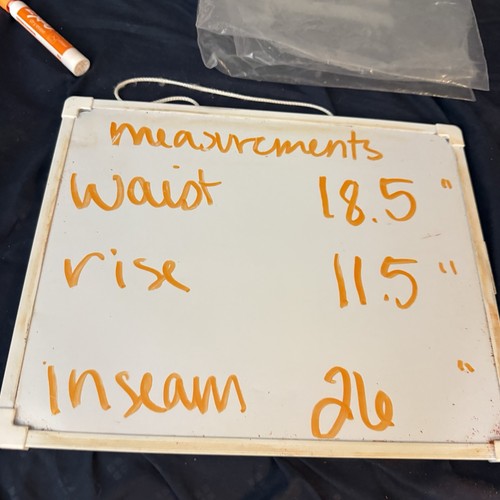 measurements
waist 18.5"
rise 11.5"
inseam 26"